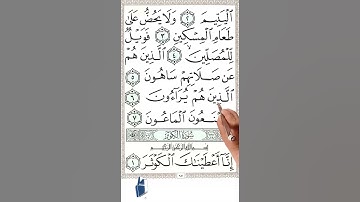 ٱلْيَتِيمَ ٢ وَلَا يَحُضُّ عَلَىٰ
طَعَامِ ٱلْمِسْكِينِ ٣ فَوَيْلٌ
لِّلْمُصَلِّينَ ٤ ٱلَّذِينَ هُمْ
عَن صَلَاتِهِمْ سَاهُونَ ٥
ٱلَّذِينَ هُمْ يُرَآءُونَ ٦
ٱلْمَاعُونَ ٧
سُورَةُ الكَوْثَرِ
بِسْمِ ٱللَّهِ ٱلرَّحْمَٰنِ ٱلرَّحِيمِ
إِنَّآ أَعْطَيْنَٰكَ ٱلْكَوْثَرَ ١